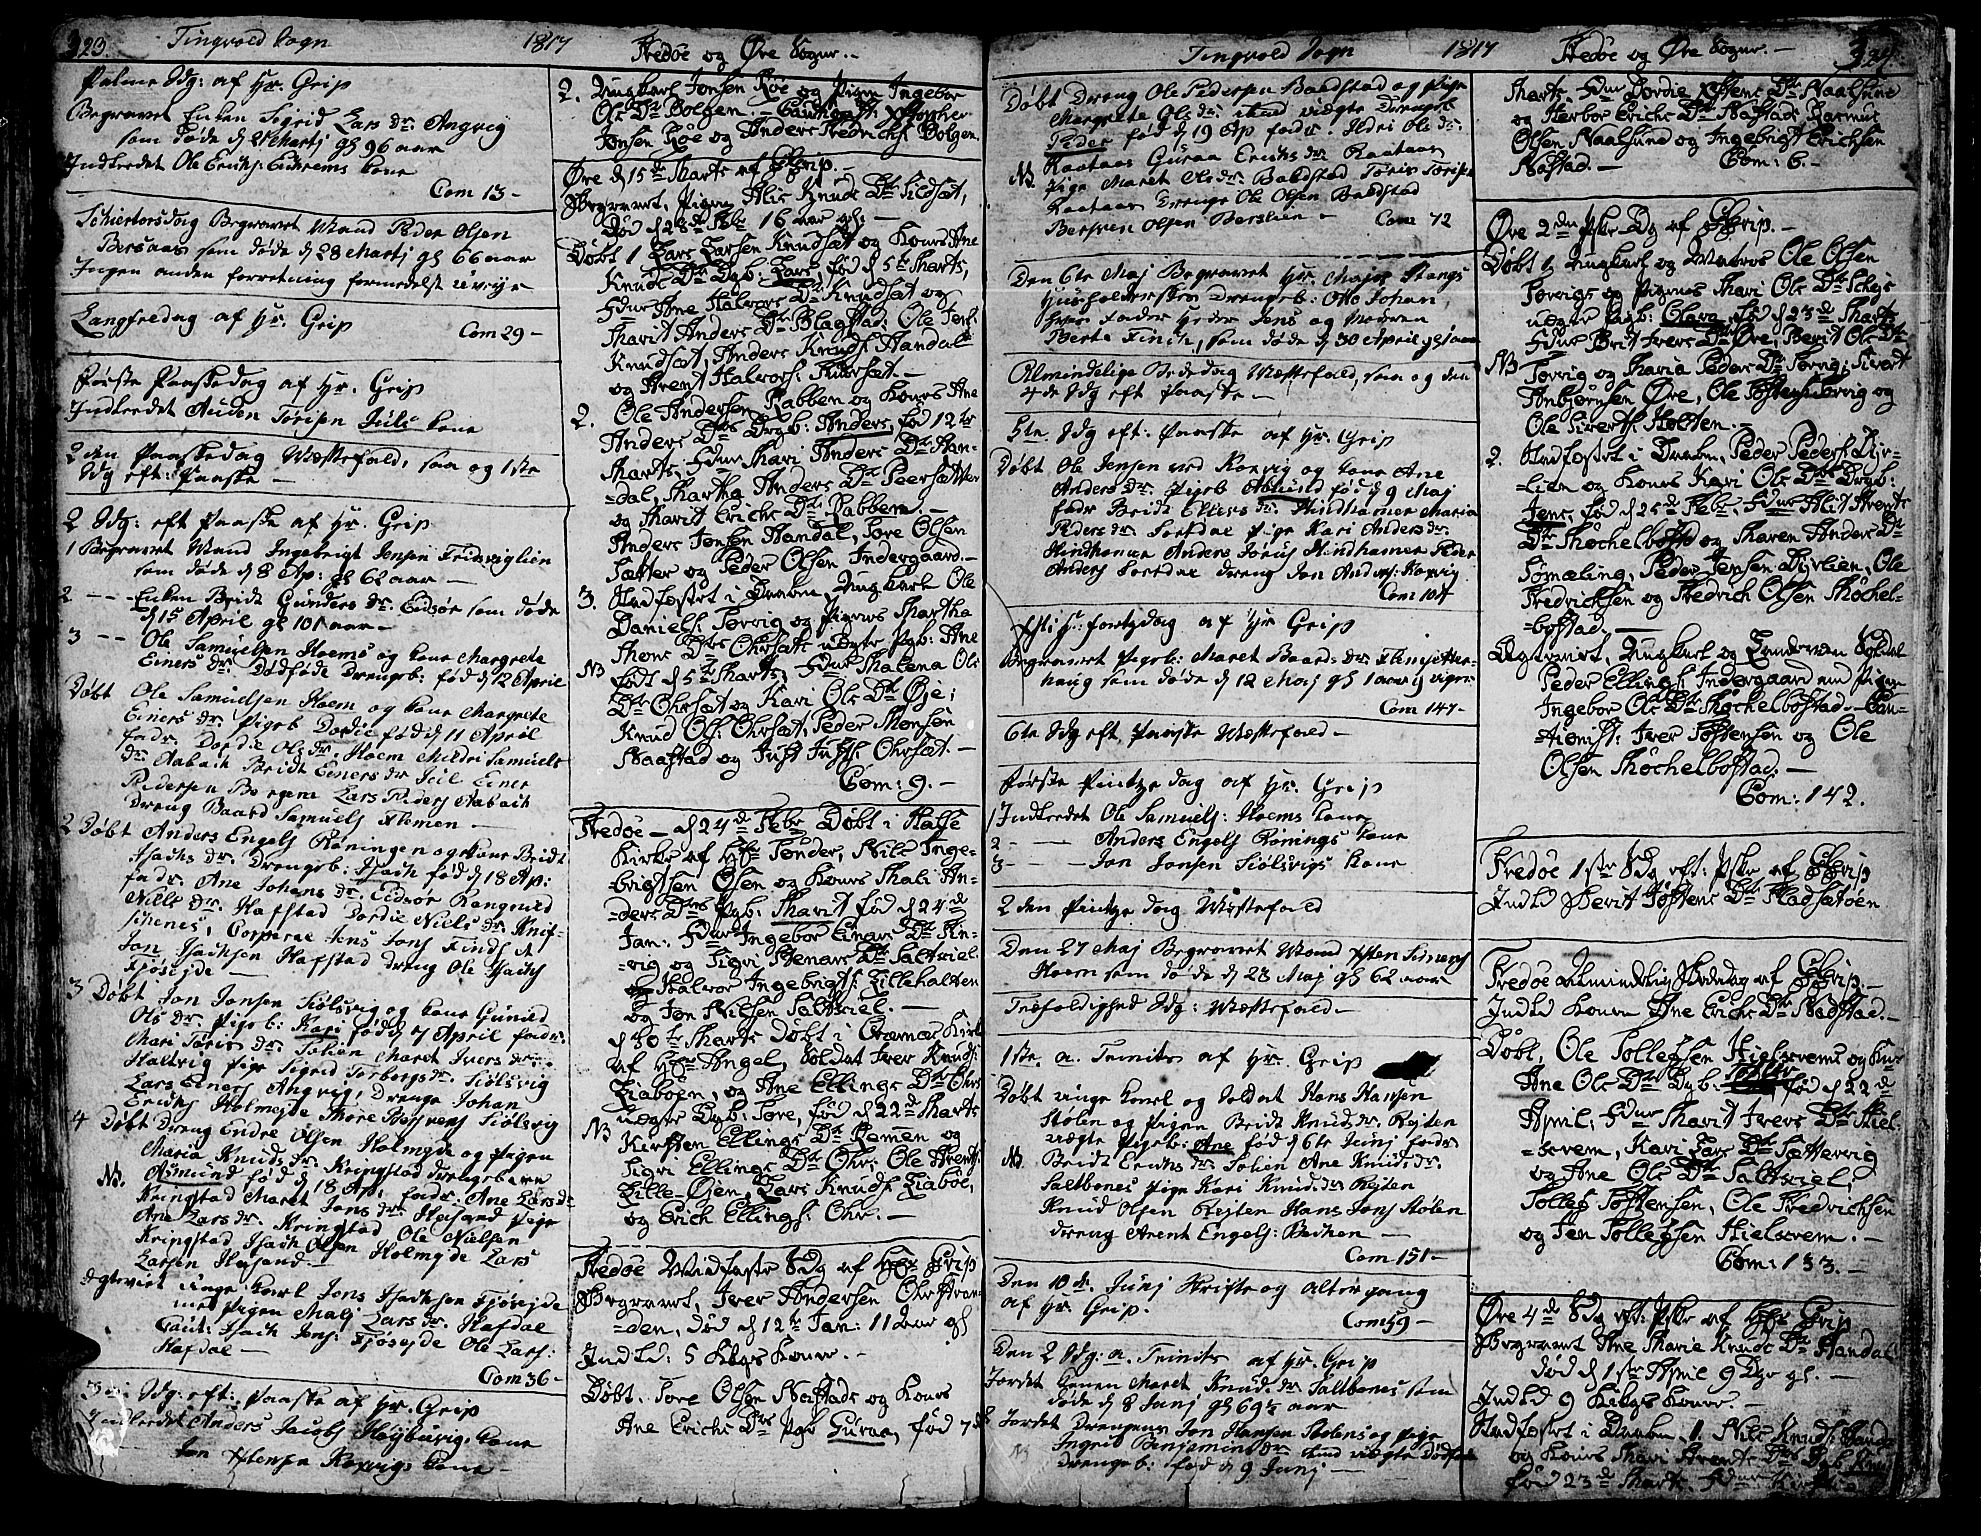 323. Tingvold Sogn 1817 Fredøe og Øre Sogner.-
Palme Sdg: af Hr. Grip
Begravet Enken Sigrid Lars dr. Angvig
som døde d. Martj gl 96 aar
Indledet Ole Erichs: Eidrems kone
Com 13-
Schiertorsdag Begravet Mand Peder Olsen
Bersaas som døde d 28 Martj gl 66 aar
Ingen anden forretning formedelst uveyr
Langfredag af Hr. Grip Com 29-
Første Paaskedag af Hr. Grip
Indledet Auden Torisen Juls kone
2den Paaskedag Messefald, saa og 1ste
Sdg eft: Paaske-
2 Sdg: eft Paaske af Hr. Grip
1 Begravet Mand Ingebrigt Jensen Fridsviglien
som døde d 8 Ap: gl 62 aar-
2 --- Enken Bridt Gunders dr. Eidsør som døde
d 15 April gl 101 aar-
3 -- Ole Samuelsen Hoems og kone Margrete
Einers dr. Dødføde Drengeb: fød d 12 April
Døbt Ole Samuelsen Hoem og kone Margrete
Einers dr. Pigeb Dordie fød d 11 April
fadr. Dordie Ols dr. Hoem Mildri Samuels
dr. Aabach Bridt Einers dr Seil Einer
Pedersen Bergem Lars Peders Aabach
Dreng Baard Samuels Hoemen-
2 Døbt Anders Engels Røningen og kone Bridt
Isachs dr. Drengeb: Isach fød d 18 Ap:
fadr. Ane Johans dr. Eidsør Rangnild
Niels dr. Hafstad Dordie Niels dr.
Corporal Jens Jons
Jon Isachsen Hafstad dreng Ole Isachs
Fjøseide-
3 Døbt Jon Jonsen Siølsvig og kone Gunild
Ols dr. Pigeb: Kari fød d 7 April fadr.
Mari Toris dr. Tolien Maret Ivers dr.
Haltvig pige Sigrid Torbergs dr. Siølsvig
Lars Einers Angvig, Drenge Johan
Erichs Holmejde Thore Siølsvig
4 Døbt Dreng Endre Olsen Holmejde og pigen
Maria Knuds dr. Kringstad Drengebarn
NB. Asmund fød d 18 Ap: fadr. Ane Lars dr
Kringstad Maret Jons dr. Heisand pige
Ane Lars dr. Kringstad Ole Nielsen
Kringstad Isach Olsen Holmejde Lars
Larsen Heisand-
Egteviet unge karl Jons Isachsen Fjøseide
med Pigen Malj Lars dr. Hafdal
Caut: Isach Jens: Fjøseide Ole Lars:
Hafdal-
Com 36-
3die Sdg: eft: Paaske af Hr. Grip
Indledet Anders Jacobs kone
Jon Jensen Korsvigs kone-
2. Ungkarl Jonsen Røe og Pigen Ingebor
Ols Dr Bolgen Christopher
Jonsen Røe og Anders Fredrichs Bolgen
Øre d 15de Marts af Hr Grip.
Begravet, Pigen Alis Knuds Dr Sildset,
Død d 28de Febr 16 aar gl:-
Døbt 1 Lars Larsen Knudset og Kones Ane
Knuds Dr Dgb: Lars, fød d 5te Marts,
Fdur Ane Halvors Dr Knudset og
Marit Anders Dr Blagstad, Ole
Knudset, Anders Knuds: Handal
og Arent Halvors:
2. Ole Andersen Rabben og Kones Ane
Anders Drs Drgb: Anders, fød 12te
Marts; Fdur Mari Anders Dr Han-
dal, Martha Anders Dr Peersætter
og Marit Erichs Dr Rabben.-
Anders Jonsen Handal, Tore Olsen
Sætter og Peder Olsen Indergaard.-
3. Stadfæstet i Daaben, Ungkarl Ole
Daniels: Torvig og Pigens Martha
Mons Drs Ohrset uegte Pgb: Ane
NB født d 5te Marts; Fdur Malena Ols
Dr Ohrset og Kari Ols Dr Øje;
Knud Ols: Ohrset, Peder Monsen
Naastad og Just Justs: Ohrset.-
Com: 9.-
Fredøe- d 24de Febr Døbt i Halse
Kirke af Hr Tønder, Nils Inge-
brigtsen Osen og Kones Mali An-
ders Drs Pgb: Marit fød d 24de
Jan: Fdur Ingebor Einars Dr
vig og Sigri Stenars Dr Saltviel
og Halvor Ingebrigts: Lillehalten
og Jon Nilsen Saltviel.-
d 30te Marts Døbt i Kirke
af Hr Angel, Soldat Iver Knuds:
Liabøen, og Ane Ellings Dr Ohrs
uegte Dgb: Tore, fød d 22de Marts
NB Kirsten Ellings Dr Remen og
Sigri Ellings Dr Ohr; Ole Arents:
Lille-Øien, Lars Knuds: Liabøe,
og Erich Ellings: Ohr.-
Fredøe Midfaste Sdg af Hr Grip
Begravet, Iver Andersen Ohr
den, Død d 12te Jan: 11 aar gl
Indld: 5 Koner.-
Døbt. Tore Olsen Naastad og Kones
Ane Erichs Drs Pgb Guraa, fød 7de
Tingvold Sogn 1817 Fredøe og Øre Sogner.- 324
Døbt Dreng Ole Pedersen Baadstad og Pige
Margrete Ols dr. uægte Drengeb
Peder fød d 19 Ap fadr. Ildri Ols dr.
NB. Raataas Guraa Erichs dr Raataas
Pige Maret Ols dr. Baadstad Toris Torisen
Raataas Drenge Ole Olsen Baadstad
Bersven Olsen Berslien- Com 72
Den 6te Maj Begravet Hr. Major Stangs
Huusholderskes Drengeb: Otto Johan
hvis fader heder Jens og Moeren
Berte Finch, som døde d 30 April gl 1 aar
Almindelige Bededag Messefald, saa og den
4de Sdg eft Paaske-
5te Sdg eft: Paaske af Hr. Grip
Døbt Ole Jensen ved Korsvig og kone Ane
Anders dr. Pigeb Asmund fød d 9 Maj
fadr Bridt Ellens dr. Mindhamer Maria
Peders dr. Sordal pige Kari Anders dr.
Mindhamer Anders Jørns Mindhamer Peder
Anders Sordal dreng Jon Anders: Korsvig
Com 107
Christi H: fartsdag af Hr Grip
Begravet Pigeb: Maret Baards dr. Flemsetter-
haug som døde d 12 Maj gl 1 aar 19 uger
Com 147-
6te Sdg eft Paaske Messefald-
Første Pintze dag af Hr. Grip
1 Indledet Ole Samuels: Hoems kone
2- -- Anders Engels Rønings kone
3- -- Jon Jonsen Siølsvigs kone
2den Pintze dag Messefald
Den 27 Maj Begravet Mand
Hoem som døde d 23 Maj gl 62 aar
Trefoldighed Sdg: Messefald-
1ste a. Trinits af Hr. Grip
Døbt unge karl og Soldat Hans Hansen
Stølen og pigen Bridt Knuds dr. Rejten
uægte Pigeb: Ane fød d 6te Junj fadr
NB. Bridt Erichs dr. Tolien Ane Knuds dr.
Saltbones pige Kari Knuds dr Rejten
Knud Olsen Rejten Hans Jons Stølen
dreng Arent Engels: Bachen-
Com 151-
Den 10de Junj Skrifte og altergang
af Hr. Grip.
Com 59-
Den 2 Sdg: a. Trinits af Hr. Grip
Jordet Maret Knuds dr Saltbones som
døde d 8 Junj gl 69½ aar
Jordet Drengens Jon Hansen Stolens og pige
NB Ingrid Benjamins dr uægte Dødfød
Drengeb: fød d 9 Junj-
Marts, Fdur Dordie Dr Naalsund
og Herbor Erichs Dr Naastad, Rasmus
Olsen Naalsund og Ingebrigt Erichsen
Naastad.- Com: 6.-
Øre 2den Pske Dg af Hr Grip.-
Døbt 1, Ungkarl og Matros Ole Olsen
Torvigs og Pigens Mari Ols Dr
uegte Pgb: Olava, fød d 23de Marts
Fdur Brit Ivers Dr Øre, Berit Ols Dr
NB Torvig og Maria Peders Dr Torvig; Sivert
Anbjørnsen Øre, Ole Tøstensen Torvig og
Ole Siverts: Holten.-
2. Stadfæstet i Daaben, Peder Peders: Dyr-
lien og Kones Kari Ols Drs Drgb:
Jens, fød d 25de Febr, Fdur Alit Arents
Dr Møchelbostad og Maren Anders Dr
Sømeling, Peder Jensen Dyrlien, Ole
Fredrichsen og Fredrich Olsen Møchel-
bostad.-
Egteviet, Ungkarl og Landevern Soldat
Peder Ellings: Indergaard med Pigen
Ingebor Ols Dr Møchelbostad.- Cau-
tionist: Iver Tøstensen og Ole
Olsen Møchelbostad.-
Com: 142.
Fredøe 1ste Sdg eft: Pske af Hr Grip
Indld Berit Tøstens Dr Kladsetøen
Fredøe Almindelig Bededag af Hr Grip.-
Indld Konen Ane Erichs Dr Naastad.-
Døbt, Ole Tollefsen Stielsvems og Kone
Ane Ols Drs Dgb: Tollef fød d 22de
April; Fdur Marit Ivers Dr Stiel-
svem, Kari Lars Dr Settervig
og Ane Ols Dr Saltviel;
Tollef Tøstensen, Ole Fredrichsen
og Jon Tollefsen Stielsvem.-
Com: 133.-
Øre 4de Sdg eft: Pske af Hr Grip
Begravet Ane Marie Knuds Dr Handal
død d 1ste April 9 Dge gl.-
Indld 9 Koner.-
Stadfæstet i Daaben. 1. Nils Knuds: Handal
og Kones Mari Arents Drs Dgb Knud
fød 23de Marts. Fdur